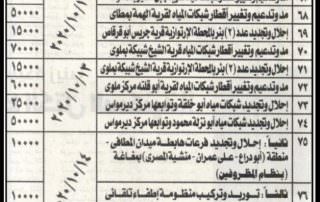 ٦٨ مد وتدعيم وتغيير أقطار شبكات المياه لقرية الهمة بمطاى ٥٠٠٠٠
٦٩ إحلال وتجديد عدد (٢) بئر بالمحطة الارتوازية قرية جريس أبو قرقاص ١٥٠٠٠
٧٠ مد وتدعيم وتغيير أقطار شبكات المياه لقرية الشيخ شبيكة بملوى ٧٠٠٠٠
٧١ إحلال وتجديد عدد (٢) بئر بالمحطة الارتوازية قرية الشيخ شبيكة بملوى ١٥٠٠٠
٧٢ مد وتدعيم وتغيير أقطار شبكات المياه أبو قلته مركز ملوى ٦٠٠٠٠
٧٣ إحلال وتجديد شبكات مياه أبو خلقة وتوابعها مركز ديرمواس ٣٥٠٠٠
٧٤ إحلال وتجديد شبكات مياه أبو نزلة محمود وتوابعها مركز ديرمواس ٥٠٠٠٠
٢٠٢٠/١٠/١٣
٧٥ ثانياً : إحلال وتجديد فرعات هابطة ميدان المطافى -
منطقة (أبو دراع - على عمران - منشية المصرى) بمغاغة
(بنظام المظروفين) ١٠٠٠٠
٢٠٢٠/١٠/١٤
٧٦ ثالثاً : توريد وتركيب منظومة إطفاء تلقائى ١٠٠٠٠